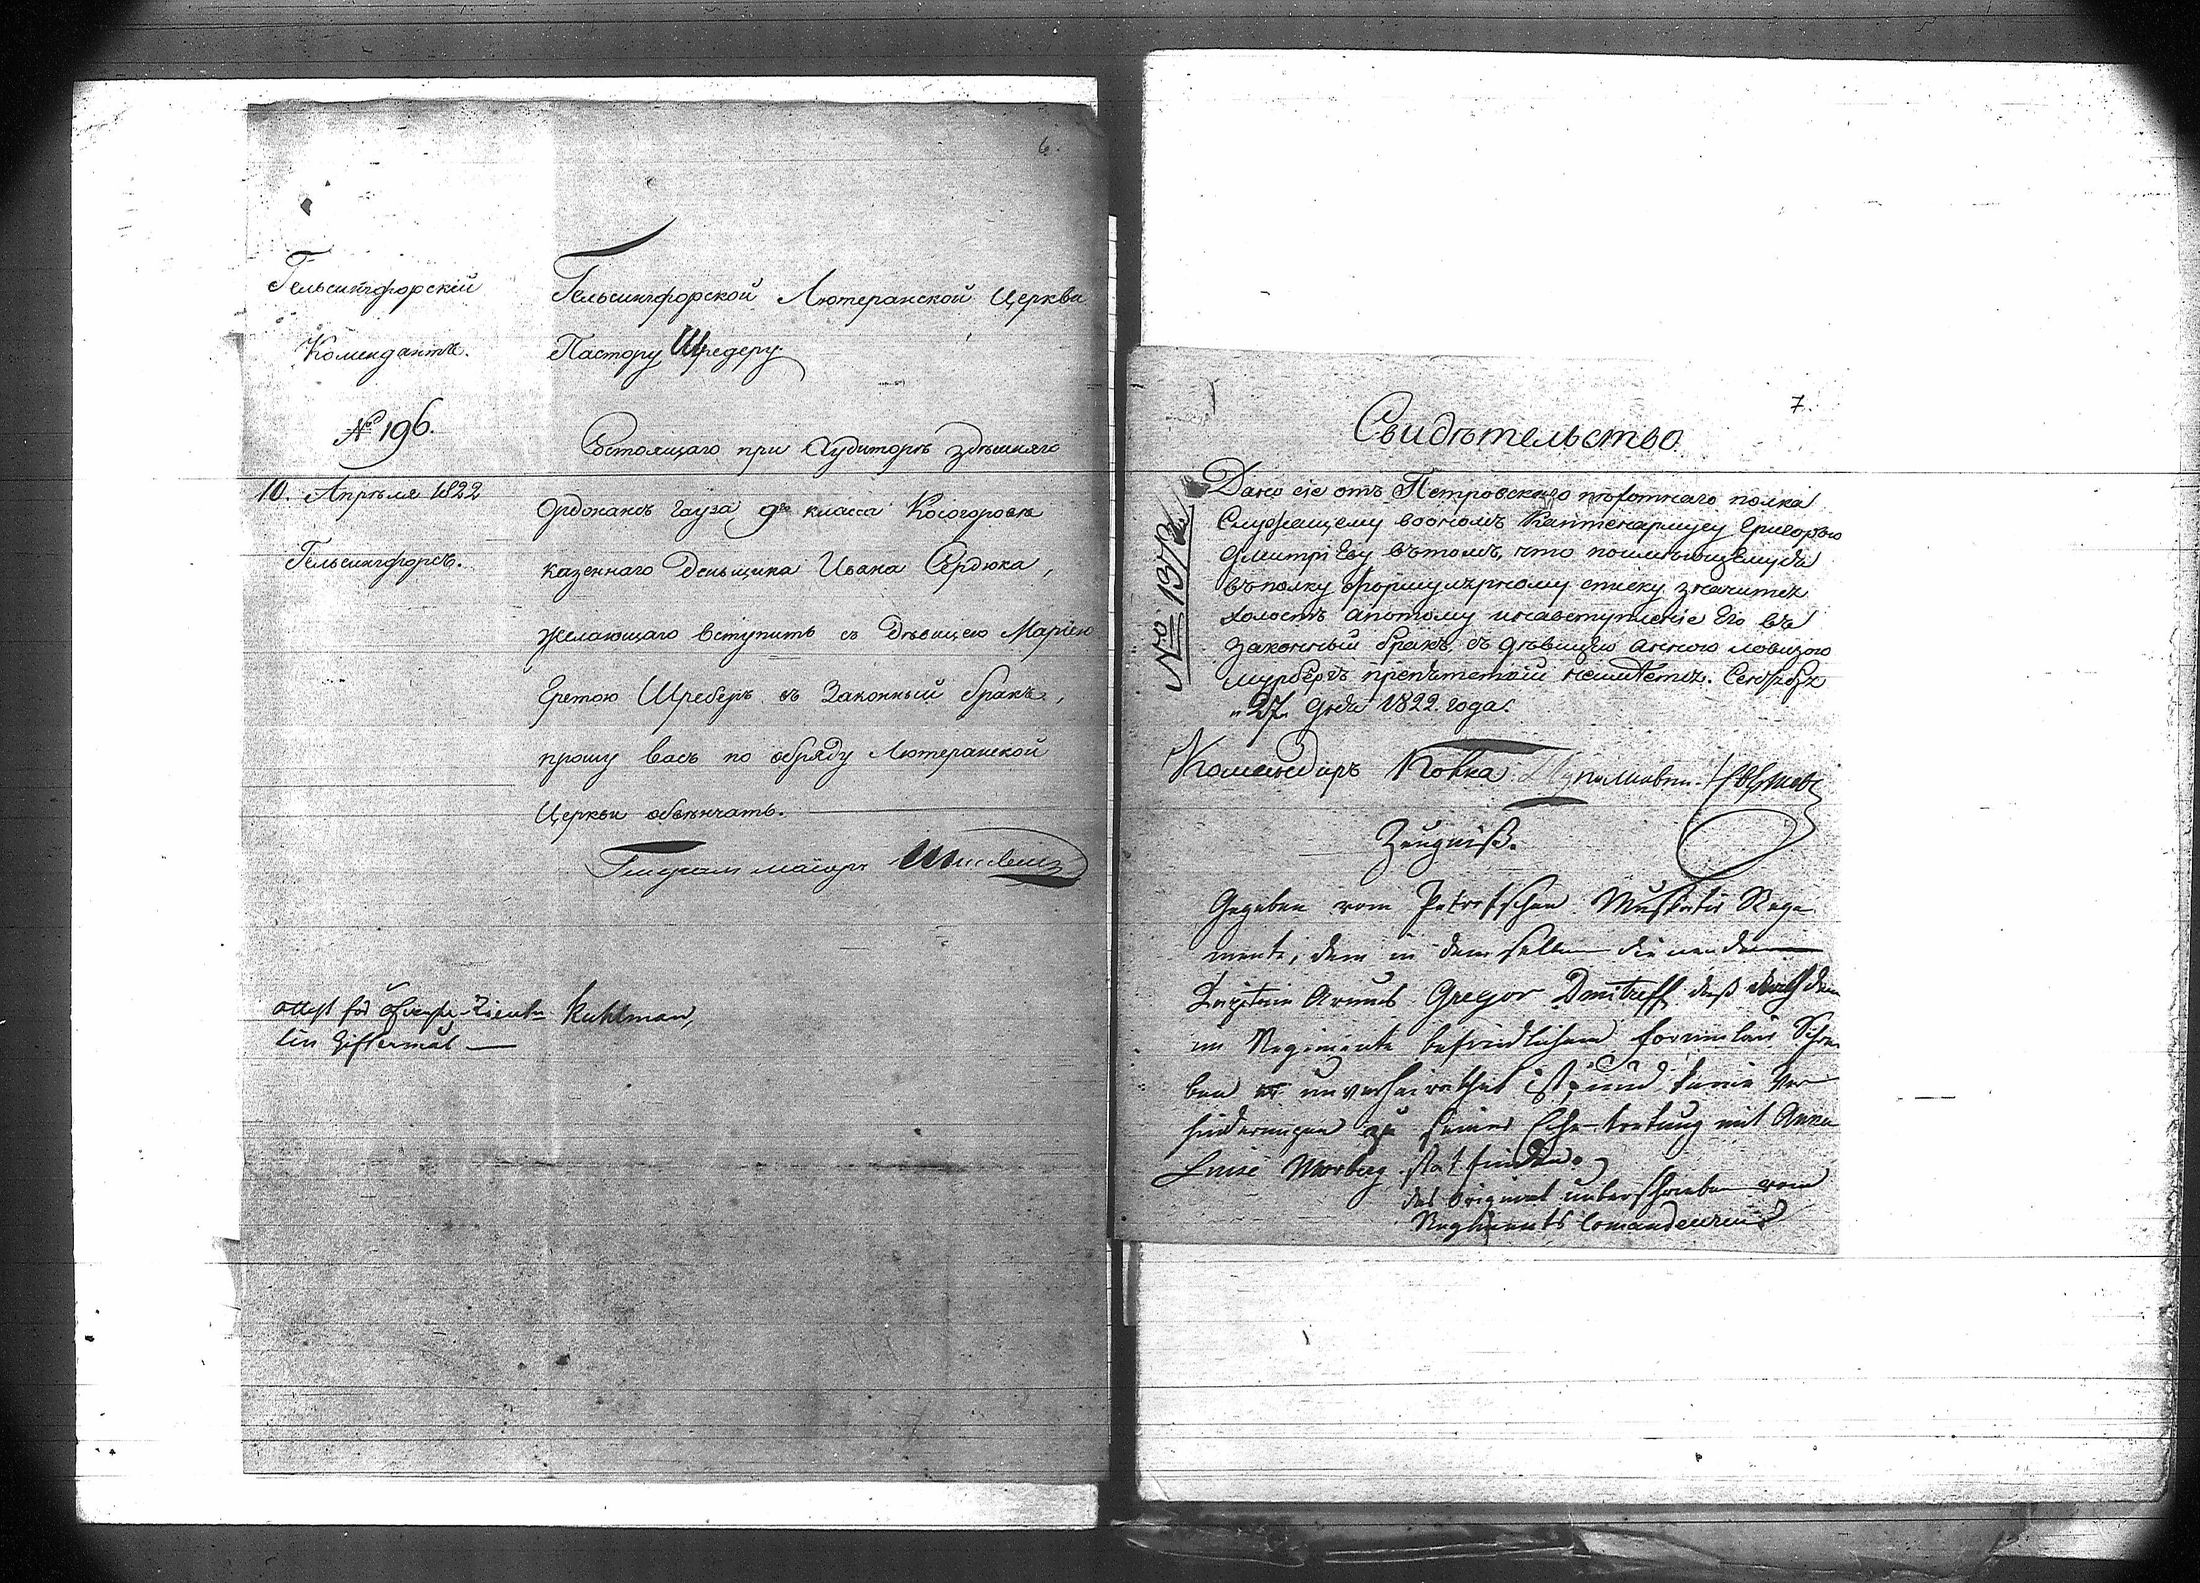 6.
Гельсингфорскій
Комендантъ.
№ 196.
10. Апрѣля 1822
Гельсингфорсъ.
Гельсингфорской Лютеранской Церкви
Пастору Шредеру.
Состоящаго при Аудиторѣ здѣшняго
Ордонансъ Гауза 9го класса Косогоровѣ
казеннаго Деньщика Ивана Сердюка,
желающаго вступить съ Дѣвицею Маріею
Гретою Шреберъ въ Законный бракъ,
прошу васъ по обряду Лютеранской
Церкви обвѣнчать.
Генералъ маіоръ
attest för Kuhlman,
till Giftermål
7.
Свидѣтельство.
No 1372.
Дано сіе отъ Петровскаго пѣхотнаго полка
Служащему вономъ Каптенармусу Григорью
Дмитріеву вътомъ, что поимеющемуся
въполку формулярному списку значится
холостъ апотому инавступленіе Его въ
законный бракъ, съ дѣвицею анною ловизою
мурбергъ препятствій неимѣется. Сентября
"27" дня 1822 года.
Командиръ Полка
Zeugniß.
Gegeben vom Petrofschen Musketir Rege
mente, dem in demselben dienenden
Capitain Armus Gregor Dmitreff daß nach dem
im Regimente befindlichen formulair Schrei
ben er unverheirathet ist, und keine Ver
hinderungen zu seiner Ehe-tretung mit Anna
Luise Morberg statfinden.
das Original unterschrieben vom
Regiments Comandeuren